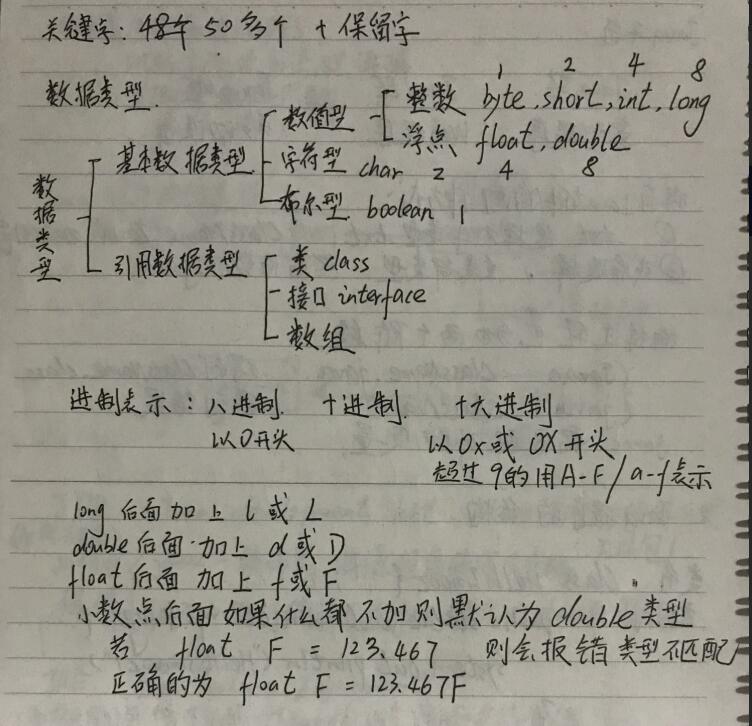 关键字：48个 50多个 + 保留字
1 2 4 8
数据类型.
整数 byte,short,int,long
数值型
浮点 float,double
基本数据类型
字符型 char 2 4 8
布尔型 boolean 1
数据类型
引用数据类型
类 class
接口 interface
数组
进制表示：八进制. 十进制. 十六进制
以0开头 以0x或 0X 开头
超过9的用A-F/a-f表示
long 后面加上 l 或 L
double后面加上 d或D
float后面 加上 f或F
小数点后面如果什么都不加则默认为double类型
若 float F = 123.467 则会报错类型不匹配
正确的为 float F = 123.467F